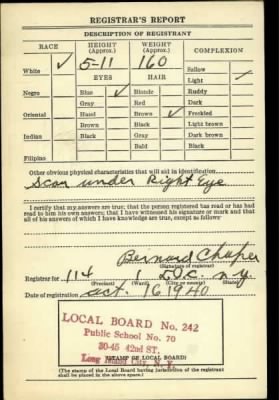 REGISTRAR'S REPORT
DESCRIPTION OF REGISTRANT
RACE HEIGHT (Approx.) WEIGHT (Approx.) COMPLEXION
White ✓ 5-11 160 Sallow
EYES HAIR Light ✓
Negro Blue ✓ Blonde Ruddy
Gray Red Dark
Oriental Hazel Brown ✓ Freckled
Brown Black Light brown
Indian Black Gray Dark brown
Bald Black
Filipino
Other obvious physical characteristics that will aid in identification
Scar under Right Eye
I certify that my answers are true; that the person registered has read or has had
read to him his own answers; that I have witnessed his signature or mark and that
all of his answers of which I have knowledge are true, except as follows:
Bernard
(Signature of registrar)
Registrar for 114 1 N.Y.
(Precinct) (Ward) (City or county) (State)
Date of registration Oct. 16 1940
LOCAL BOARD No. 242
Public School No. 70
30-45 42nd ST.
Long Island City, N. Y.
(STAMP OF LOCAL BOARD)
(The stamp of the Local Board having jurisdiction of the registrant
shall be placed in the above space.)